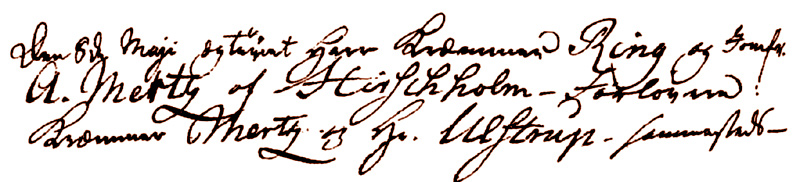 Den 8de Maji ægteviet Herr Kræmmer Ring og Jomfr.
A. Mertz af Hirschholm - Forlovere:
Kræmmer Mertz og Hr. Ulstrup - sammesteds -